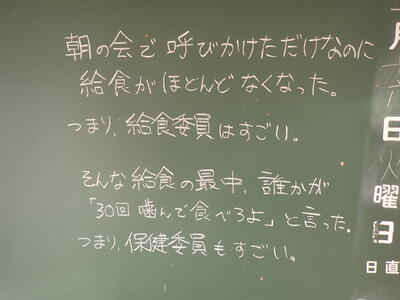 朝の会で呼びかけただけなのに
給食がほとんどなくなった。
つまり、給食委員はすごい。
そんな給食の最中、誰かが
「30回噛んで食べろよ」と言った。
つまり、保健委員もすごい。
月
日
火
曜
日
日直